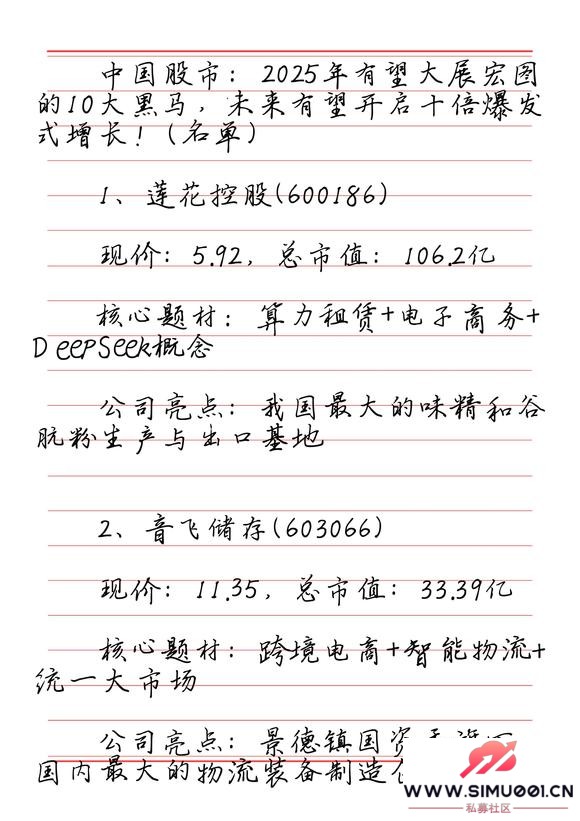 中国股市：2025年有望大展宏图
的10大黑马，未来有望开启十倍爆发
式增长！（名单）
1、莲花控股(600186)
现价：5.92，总市值：106.2亿
核心题材：算力租赁+电子商务+
DeepSeek概念
公司亮点：我国最大的味精和谷
朊粉生产与出口基地
2、音飞储存(603066)
现价：11.35，总市值：33.39亿
核心题材：跨境电商+智能物流+
统一大市场
公司亮点：景德镇国资
国内最大的物流装备制造
WWW.SIMU001.CN
私募社区